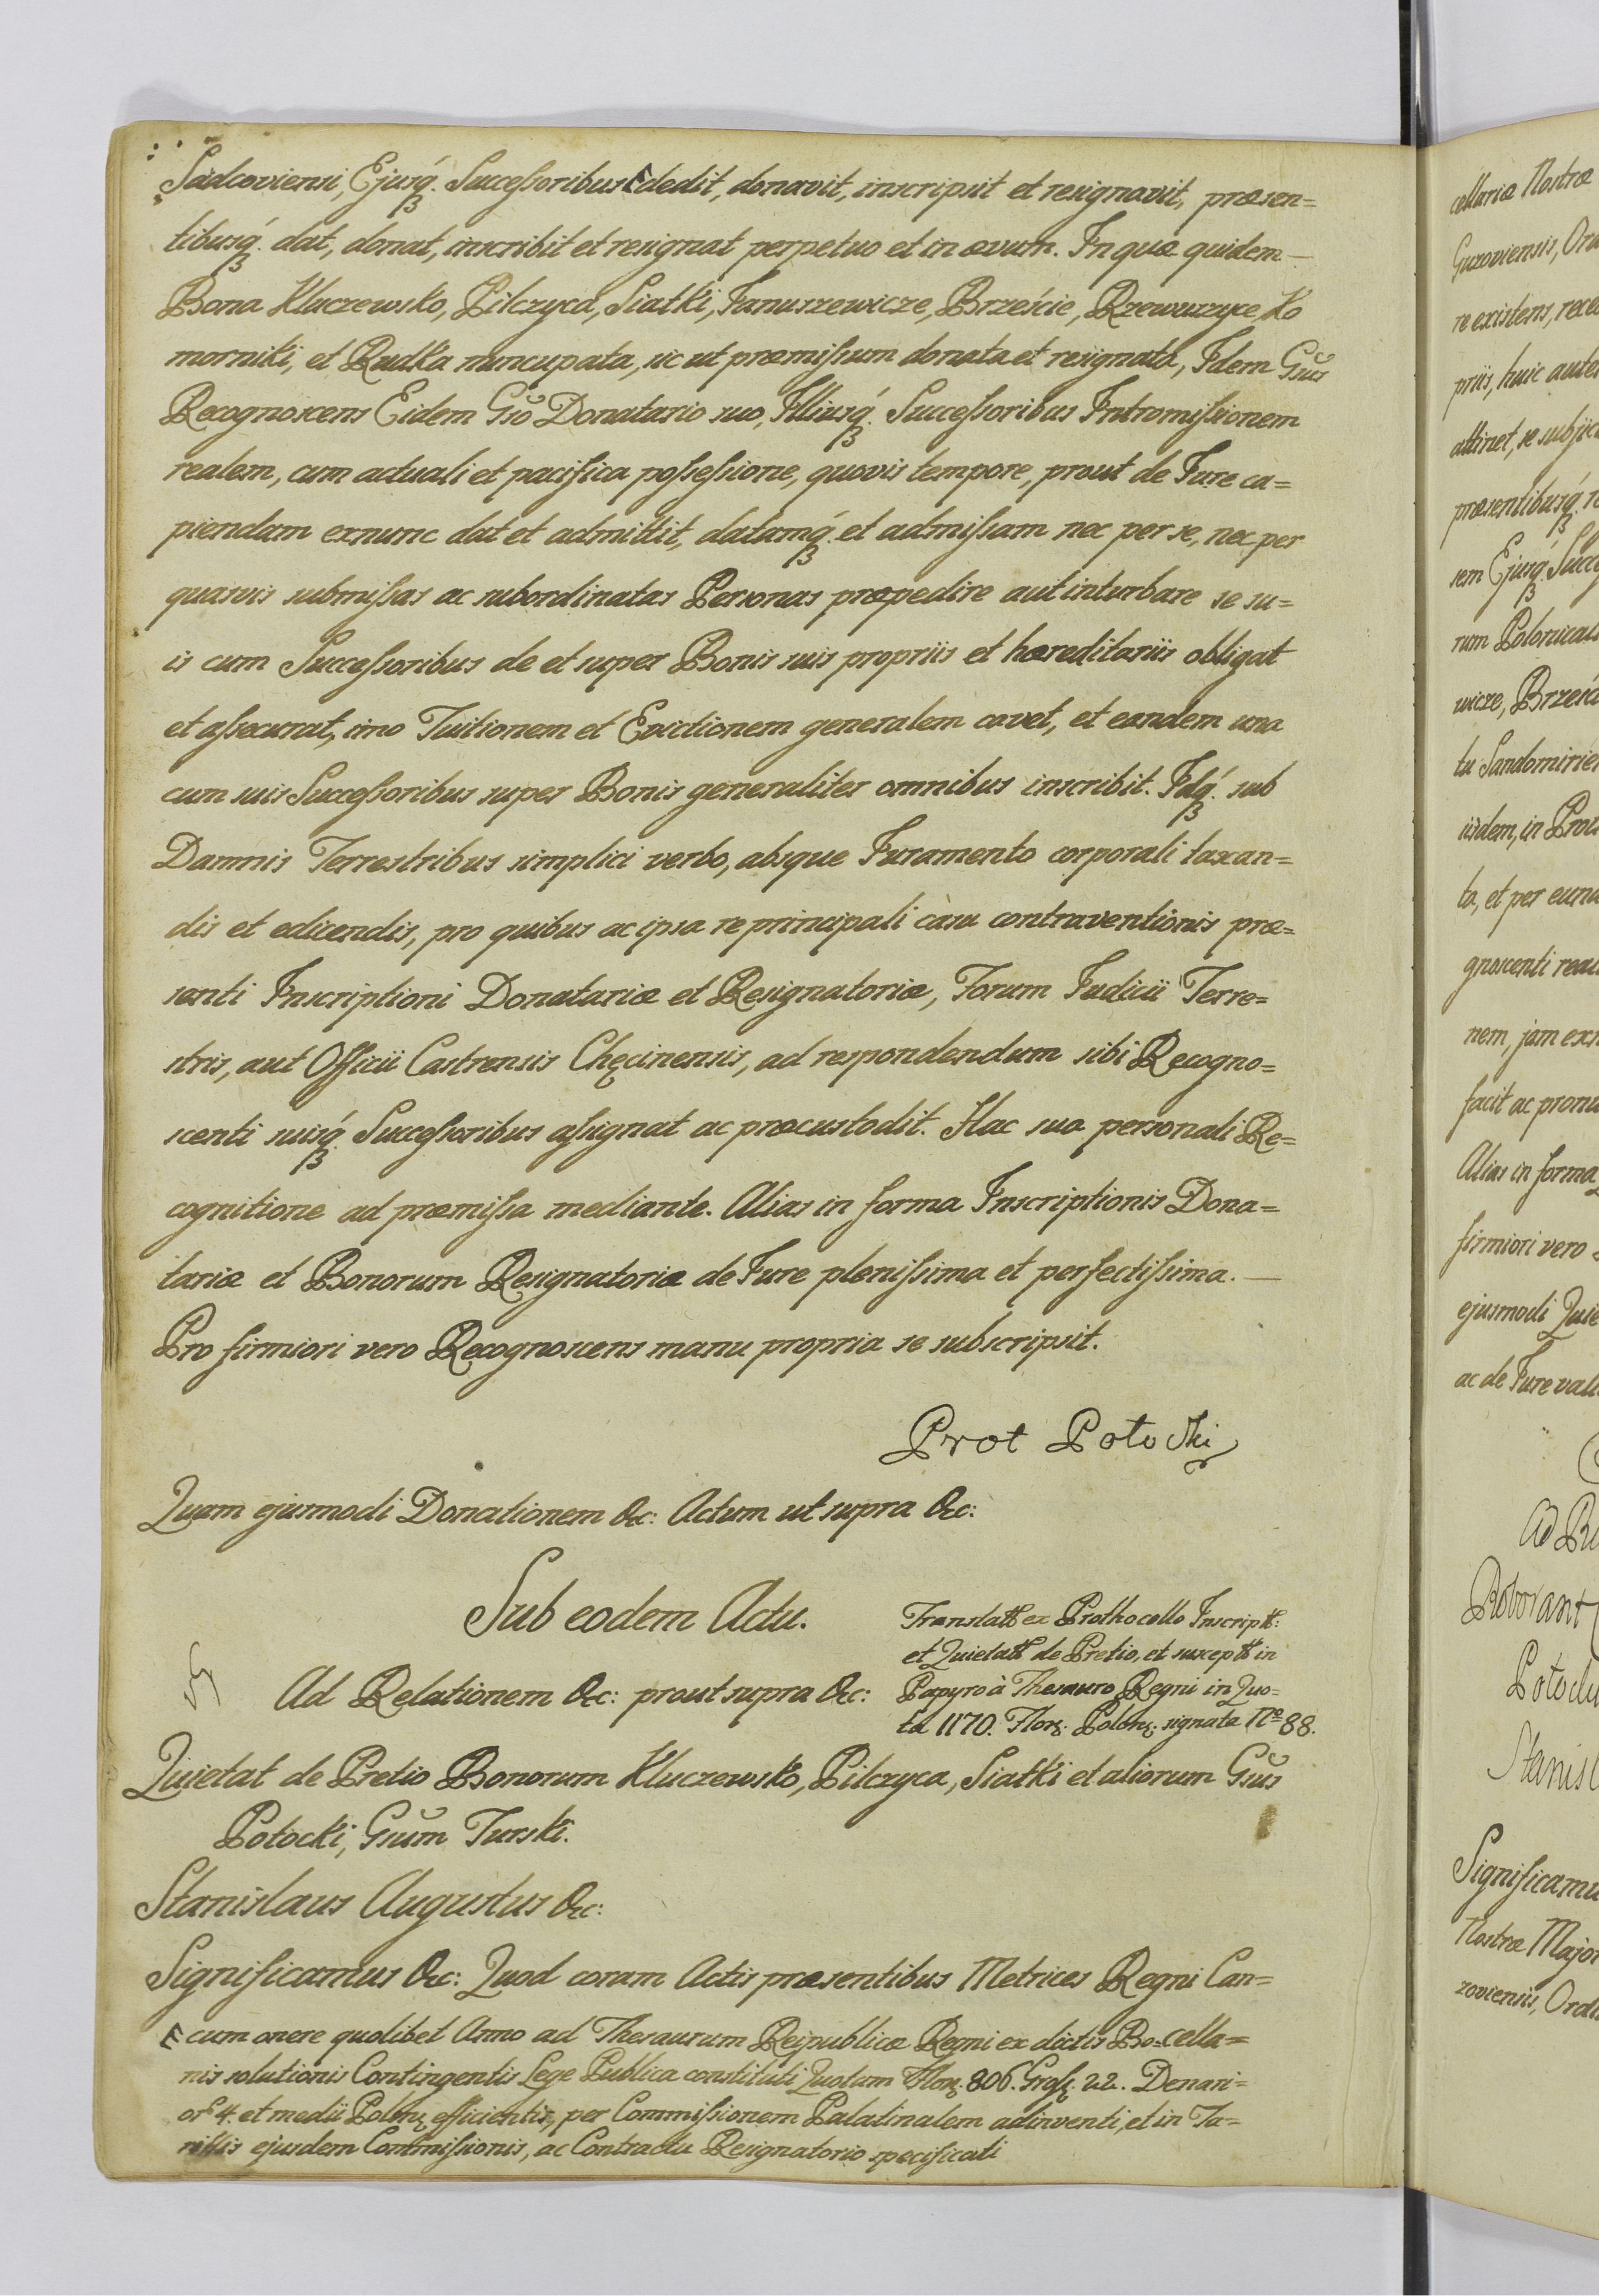 Sadcoviensi, Ejusq́ꝫ. Successoribus F dedit, donavit, inscripsit et resignavit, præsen=
tibusq́ꝫ. dat, donat, inscribit et resignat perpetuo et in ævum. In quæ quidem —
Bona Kluczewsko, Pilczyca, Siatki, Januszewicze, Brzeście, Rzewuszyce, Ko
morniki, et Rudka nuncupata, sic ut præmissum donata et resignata, Idem Gsũs
Recognoscens Eidem Gsõ Donatario suo, Illiusq́ꝫ. Successoribus Intromissionem
realem, cum actuali et pacifica possessione, quovis tempore, prout de Jure ca=
piendam exnunc dat et admittit, datamq́ꝫ. et admissam nec per se, nec per
quasvis submissas ac subordinatas Personas præpedire aut inturbare se su=
is cum Successoribus de et super Bonis suis propriis et hæreditariis obligat
et assecurat, imo Tuitionem et Evictionem generalem cavet, et eandem una
cum suis Successoribus super Bonis generaliter omnibus inscribit. Idq́ꝫ. sub
Damnis Terrestribus simplici verbo, absque Juramento corporali taxan=
dis et edicendis, pro quibus ac ipsa re principali casu contraventionis præ=
senti Inscriptioni Donatariæ et Resignatoriæ, Forum Judicii Terre=
stris, aut Officii Castrensis Chęcinensis, ad respondendum sibi Recogno=
scenti suisq́ꝫ. Successoribus assignat ac præcustodit. Hac sua personali Re=
cognitione ad præmissa mediante. Alias in forma Inscriptionis Dona=
tariæ et Bonorum Resignatoriæ de Jure plenissima et perfectissima. —
Pro firmiori vero Recognoscens manu propria se subscripsit.
Prot Potocki
Quam ejusmodi Donationem &c: Actum ut supra &c:
Sub eodem Actu.
Translatũ ex Prothocollo Inscriptũ:
et Quietatũ de Pretio, et susceptũ in
Papyro à Thesauro Regni in Quo=
ta 1170. Florꝫ. Polonꝫ. signata No 88.
Ad Relationem &c: prout supra &c:
Quietat de Pretio Bonorum Kluczewsko, Pilczyca, Siatki et aliorum Gsũs
Potocki, Gsũm Turski.
Stanislaus Augustus &c:
Significamus &c: Quod coram Actis præsentibus Metrices Regni Can=
cella=
F cum onere quolibet Anno ad Thesaurum Reipublicæ Regni ex dictis Bo=
nis solutionis Contingentis Lege Publica constituti Quotam Florꝫ. 806. Grosꝫ. 22. Denari=
orꝫ 4. et medii Polonꝫ efficientis, per Commissionem Palatinalem adinventi, et in Ta=
riffis ejusdem Commissionis, ac Contractu Resignatorio specificati
cellariæ Nostræ
Guzoviensis,
re existens,
priis, huic
attinet, se
sem Ejusq́ꝫ.
wicze,
tu
iisdem, in
to, et per
gnoscenti
nem, jam
facit ac
Alias in forma
firmiori vero
ejusmodi
ac de Jure
Roborant
Significamus
Nostræ